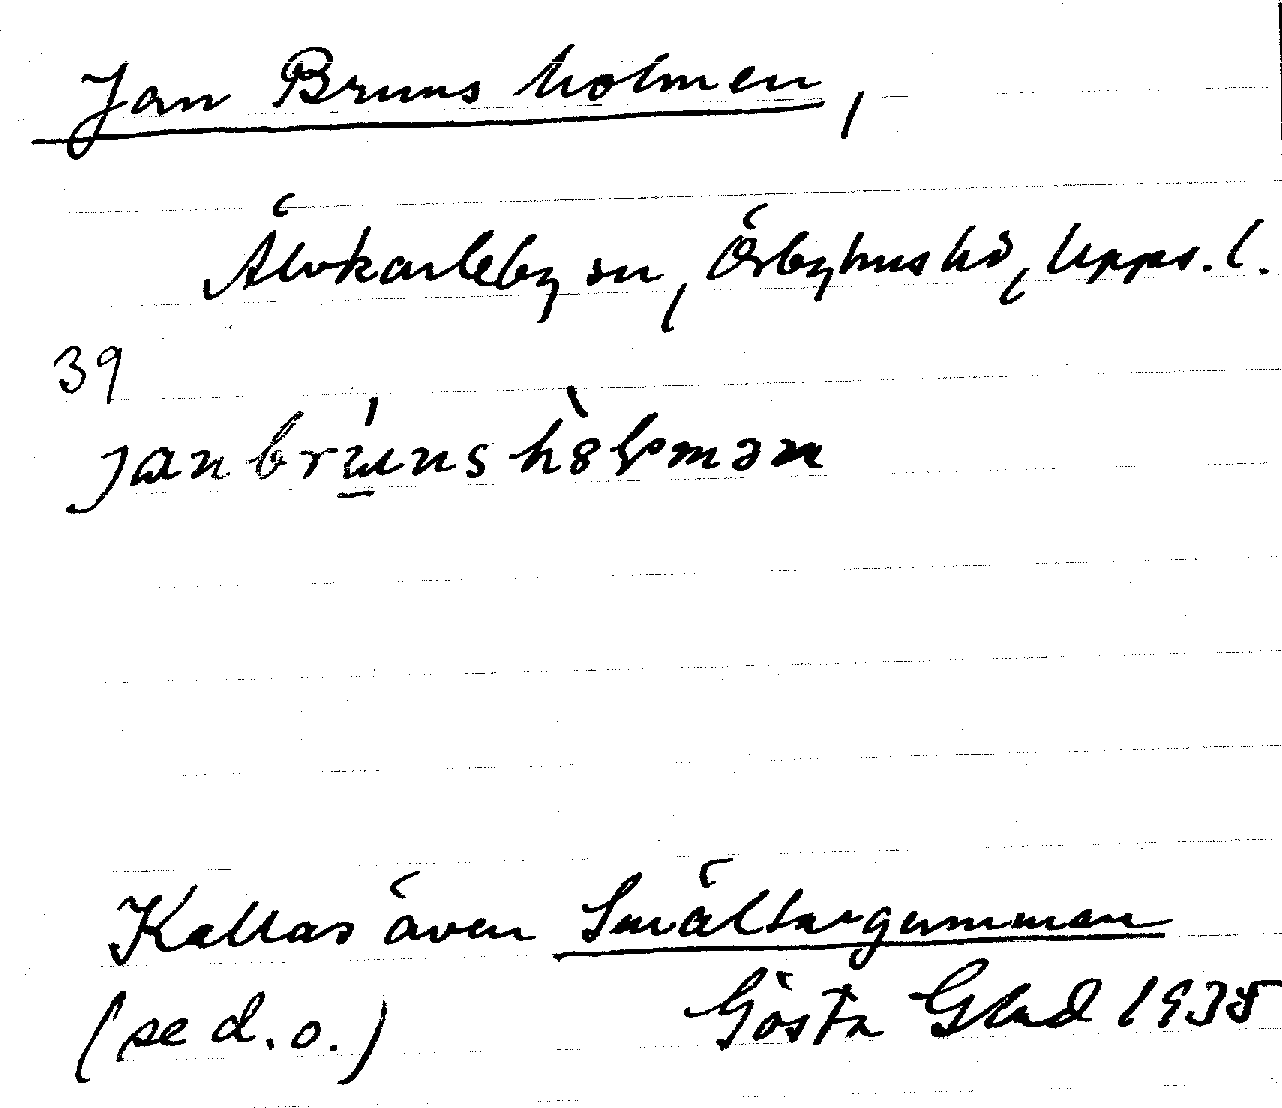 Jan Bruns holmen,
Älvkarleby sn, Örbyhus hd, Upps. l.
39
Kallas även Smältargumman
(se d. o.) Gösta Glad 1935